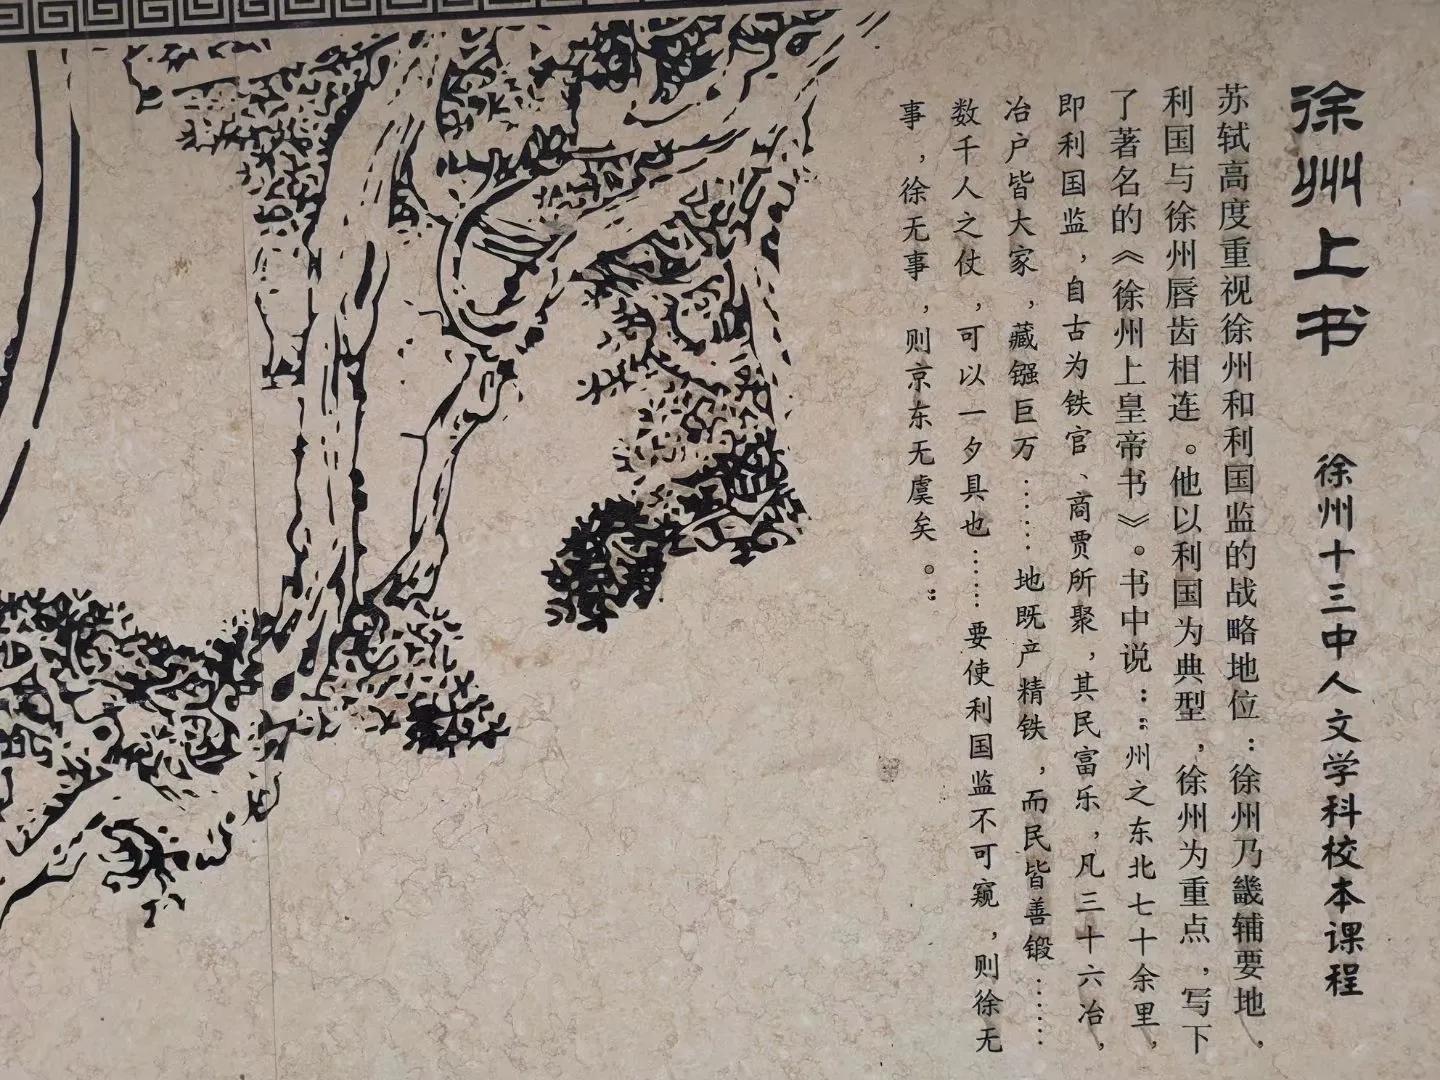 徐州上书 徐州十三中人文学科校本课程
苏轼高度重视徐州和利国监的战略地位：徐州乃畿辅要地，
利国与徐州唇齿相连。他以利国为典型，徐州为重点，写下
了著名的《徐州上皇帝书》。书中说：“州之东北七十余里，
即利国监，自古为铁官、商贾所聚，其民富乐，凡三十六冶，
冶户皆大家，藏镪巨万……地既产精铁，而民皆善锻……
数千人之仗，可以一夕具也……要使利国监不可窥，则徐无
事，徐无事，则京东无虞矣。”